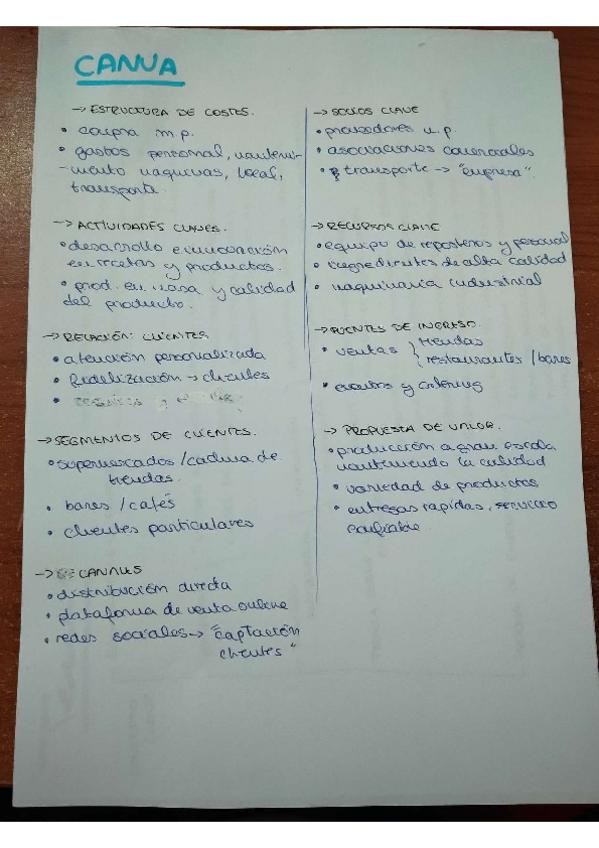 CANVA
→ ESTRUCTURA DE COSTES.
• compra m.p.
• gastos personal, manteni-
miento maquinas, local,
transporte.
→ ACTIVIDADES CLAVES.
• desarrollo e innovación
en recetas y productos.
• prod. en masa y calidad
del producto.
→ RELACIÓN: CLIENTES
• atención personalizada
• fidelización → clientes
→ SEGMENTOS DE CLIENTES.
• supermercados / cadena de
tiendas.
• bares / cafés
• clientes particulares
→ CANALES
• distribución directa
• plataforma de venta online
• redes sociales → "captación
clientes"
→ SOCIOS CLAVE
• proveedores m.p.
• asociaciones comerciales
• transporte → "empresa".
→ RECURSOS CLAVE
• equipo de reposteros y personal
• ingredientes de alta calidad
• maquinaria industrial
→ FUENTES DE INGRESO.
• ventas } tiendas
restaurantes / bares
• eventos y catering
→ PROPUESTA DE VALOR.
• producción a gran escala
manteniendo la calidad
• variedad de productos
• entregas rapidas, servicio
confiable.